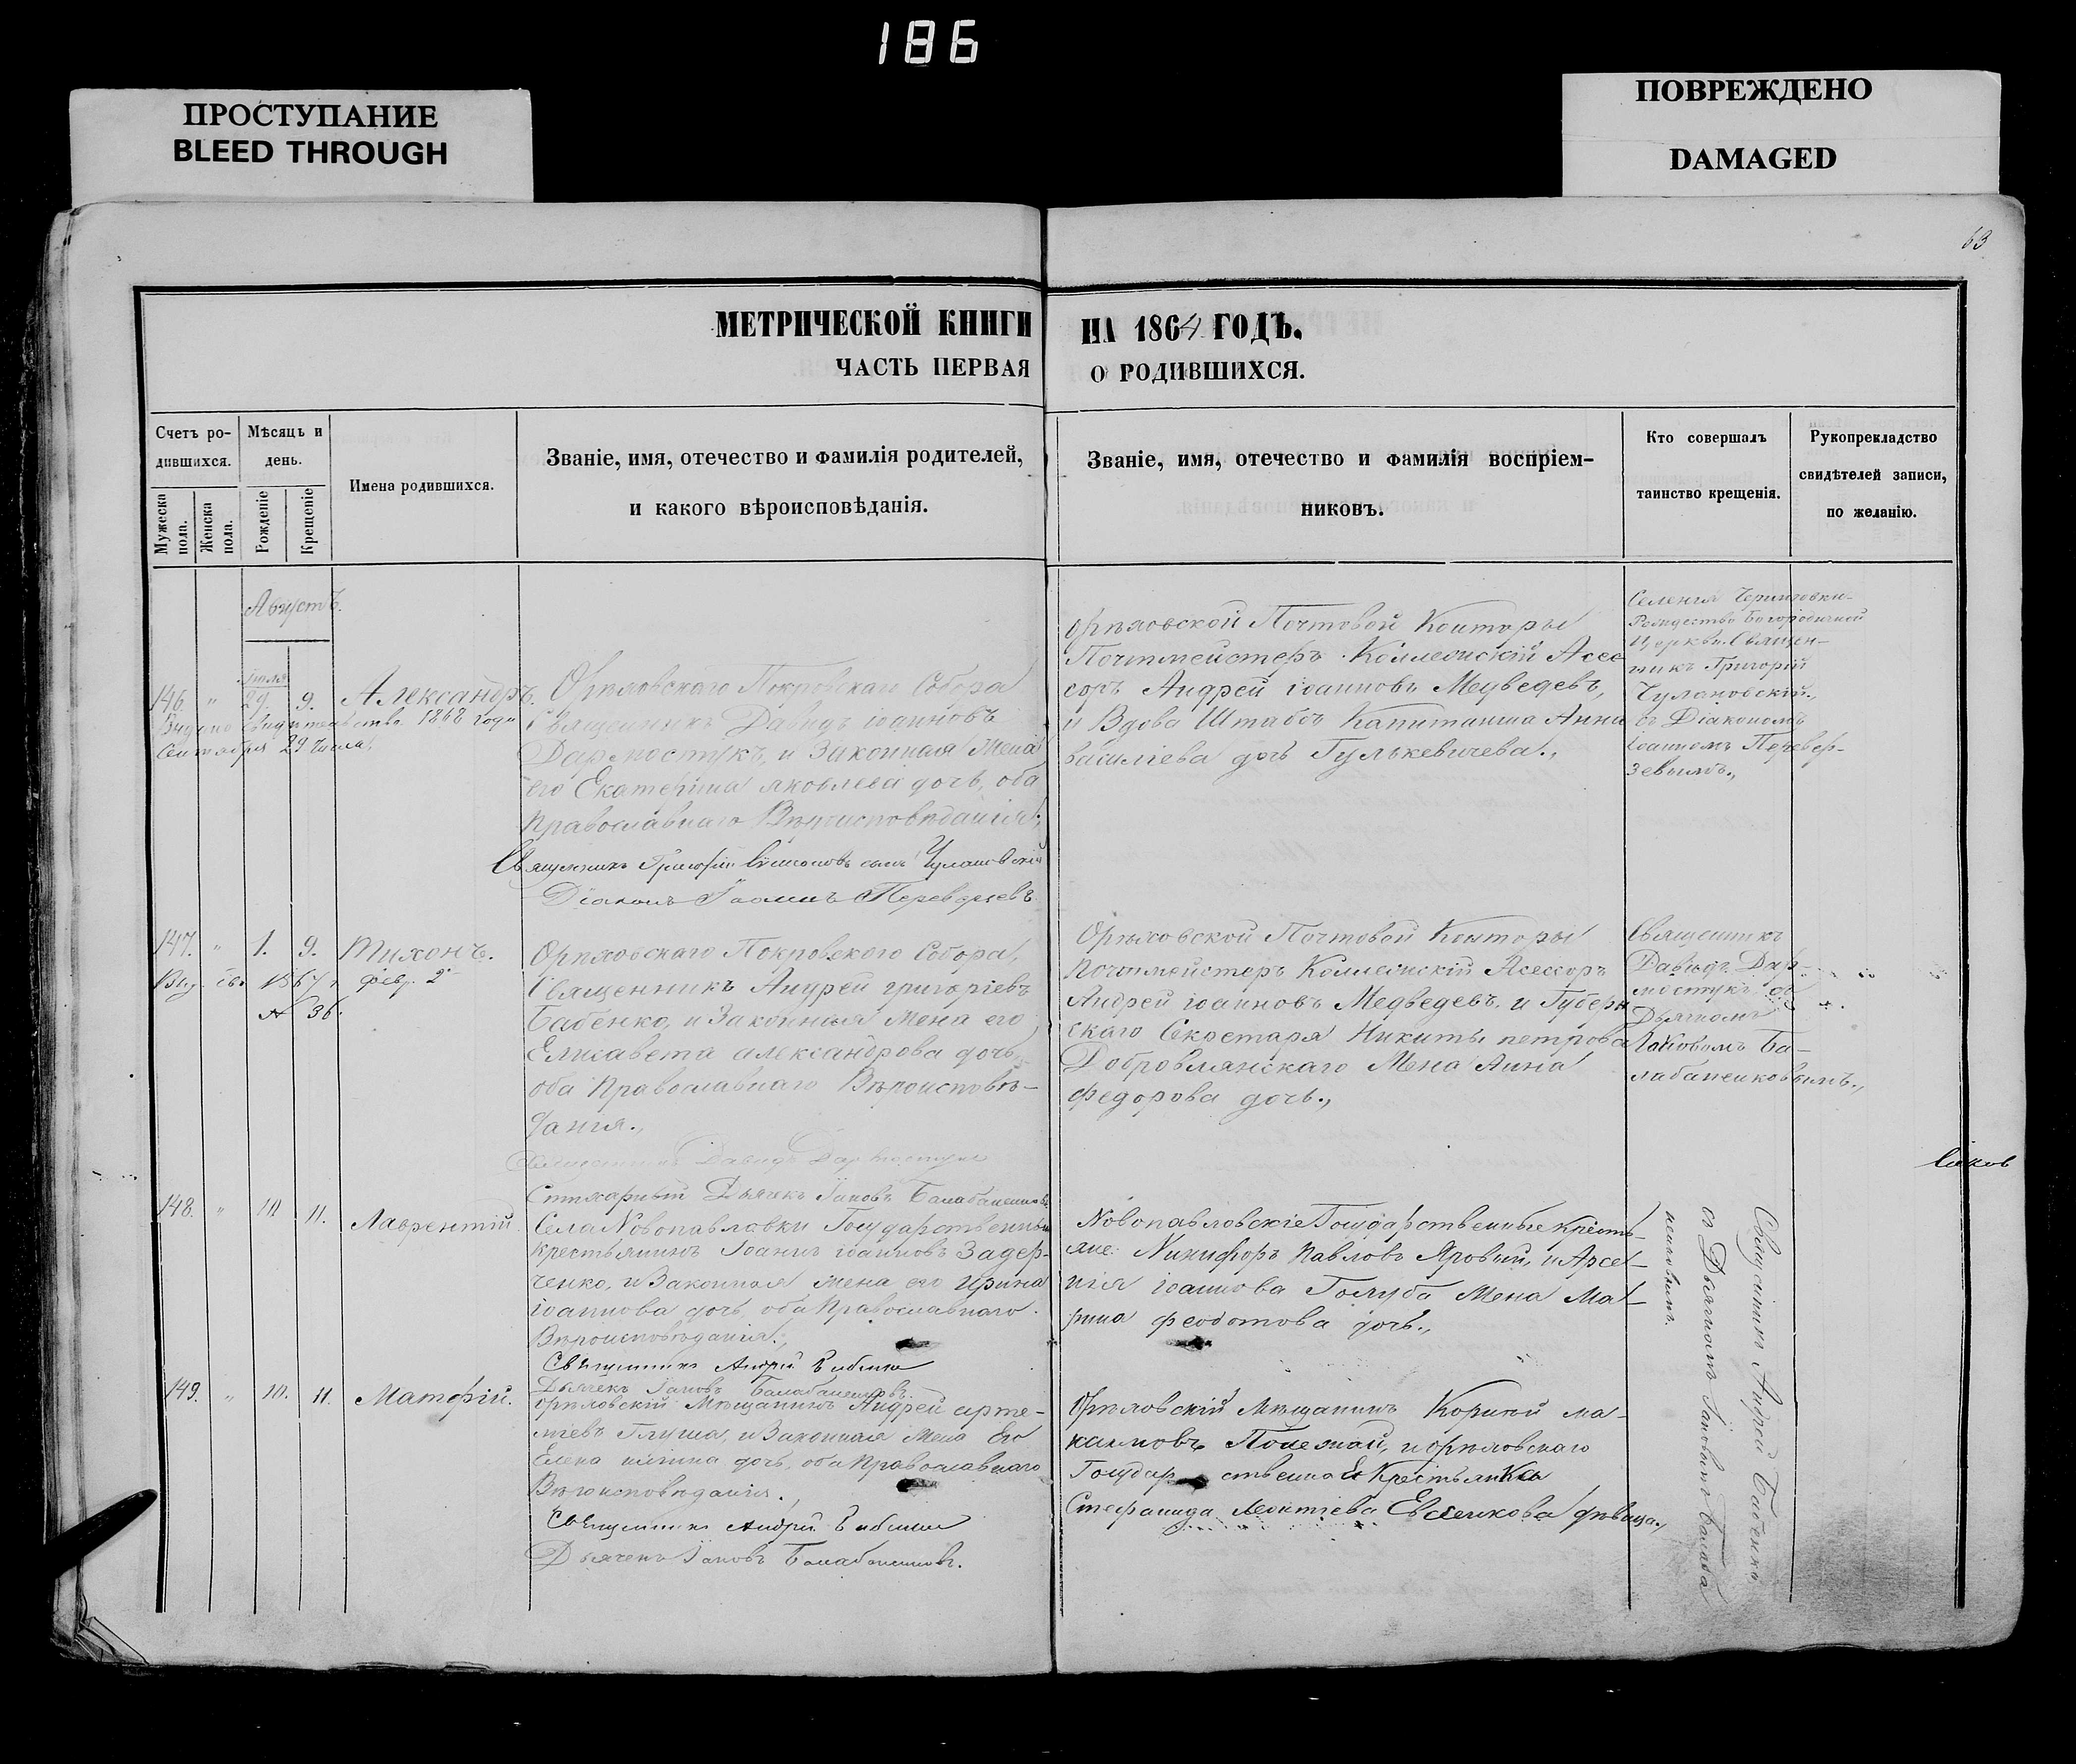 186
ПРОСТУПАНИЕ
BLEED THROUGH
ПОВРЕЖДЕНО
DAMAGED
63
МЕТРИЧЕСКОЙ КНИГИ НА 1864 ГОДЪ.
ЧАСТЬ ПЕРВАЯ О РОДИВШИХСЯ.
Счетъ ро-
дившихся.
Мужеска пола.
Женска пола.
Мѣсяцъ и
день.
Рожденіе
Крещеніе
Имена родившихся.
Званіе, имя, отечество и фамилія родителей,
и какого вѣроисповѣданія.
Званіе, имя, отечество и фамилія воспріем-
никовъ.
Кто совершалъ
таинство крещенія.
Рукоприкладство
свидѣтелей записи,
по желанію.
Августъ.
146. " 29. 9. Александръ.
1868 года
Сентября 29 числа.
Орѣховскаго Покровскаго Собора
Священникъ Давидъ іоанновъ
Дармостукъ, и Законная Жена
его Екатерина яковлева дочь, оба
Православнаго Вѣроисповѣданія.,
Священникъ Григорій сынъ Чулановскій
Діаконъ Іоаннъ Переверзевъ
Орѣховской Почтовой Конторы
Почтмейстеръ Коллежскій Асес
соръ Андрей іоанновъ Медведевъ,
и Вдова Штабсъ Капитанша Анна
василіева дочь Гулькевичева.,
Селенія Черниговки
Рождество Богородичной
Церкви Священ-
никъ Григорій
Чулановскій.,
съ Діакономъ
іоанномъ Перевер-
зевымъ.,
147. " 1. 9. Тихонъ.
Выд. св. 1867 г. февр. 2
№ 36.
Орѣховскаго Покровскаго Собора,
Священникъ Андрей григоріевъ
Бабенко, и Законная Жена его
Елисавета александрова дочь,
оба Православнаго Вѣроисповѣ-
данія.,
Священникъ Давидъ Дармостукъ
Стихарный Дьячекъ Іаковъ Балабаненковъ
Орѣховской Почтовой Конторы
Почтмейстеръ Коллежскій Асессоръ
Андрей іоанновъ Медведевъ. и Губерн
скаго Секретаря Никиты петрова
Добровлянскаго Жена Анна
федорова дочь.,
Священникъ
Давидъ Дар-
мостукъ съ
Дьячкомъ
Іаковомъ Ба-
лабаненковымъ.,
148. " 10 11. Лаврентій.
Села Новопавловки Государственный
крестьянинъ Іоаннъ іоанновъ Задер-
ченко, и Законная жена его Ирина
іоаннова дочь, оба Православнаго
Вѣроисповѣданія.,
Священникъ Андрей Бабенко
Дьячекъ Іаковъ Балабаненковъ.
Новопавловскіе Государственные Кресть-
яне: Никифоръ Павловъ Яровый, и Арсе-
нія іоаннова Голуба Жена Ма-
рина феодотова дочь.,
Священникъ Андрей Бабенко
съ Дьячкомъ Іаковымъ Балаба
ненковымъ.
149. " 10. 11. Матфій.
Орѣховскій Мѣщанинъ Андрей арте-
міевъ Глуша, и Законная Жена Его
Елена дочь, оба Православнаго
Вѣроисповѣданія.,
Священникъ Андрей Бабенко
Дьячекъ Іаковъ Балабаненковъ.
Орѣховскій Мѣщанинъ Корній ма-
ксимовъ и орѣховскаго
Государственна Крестьянка
Стефанида Леонтіева Евсенкова дѣвица.,